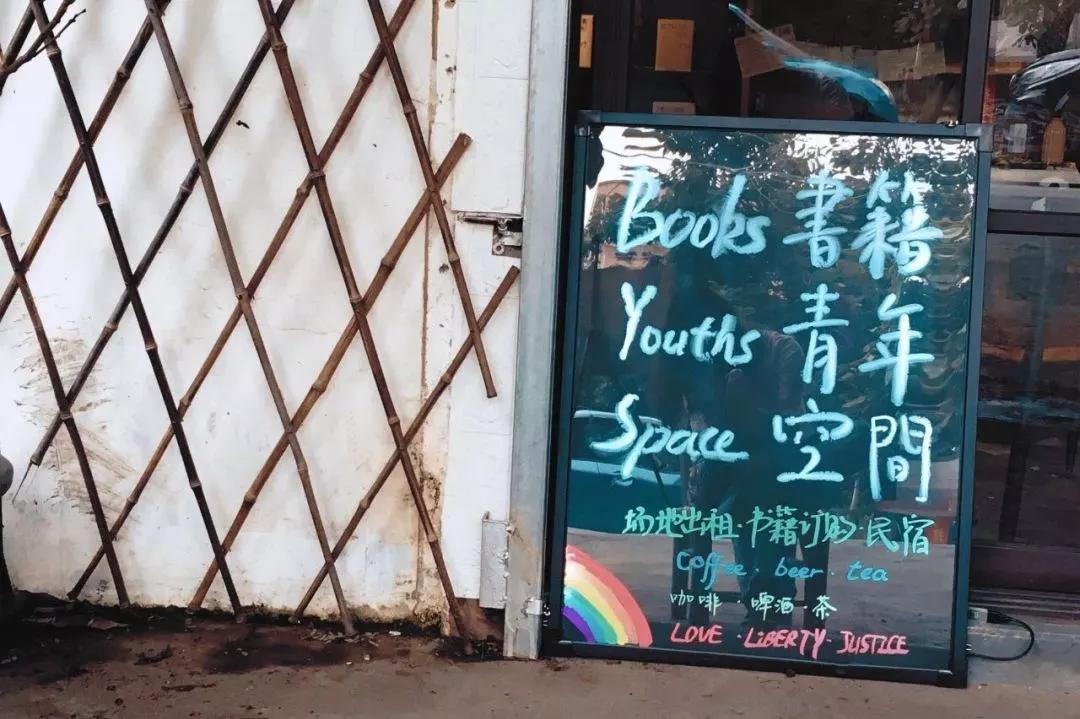 Books 書籍
Youths 青年
Space 空間
场地出租·书籍订购·民宿
Coffee · beer · tea
咖啡 · 啤酒 · 茶
LOVE · LiBERTY · JUSTICE